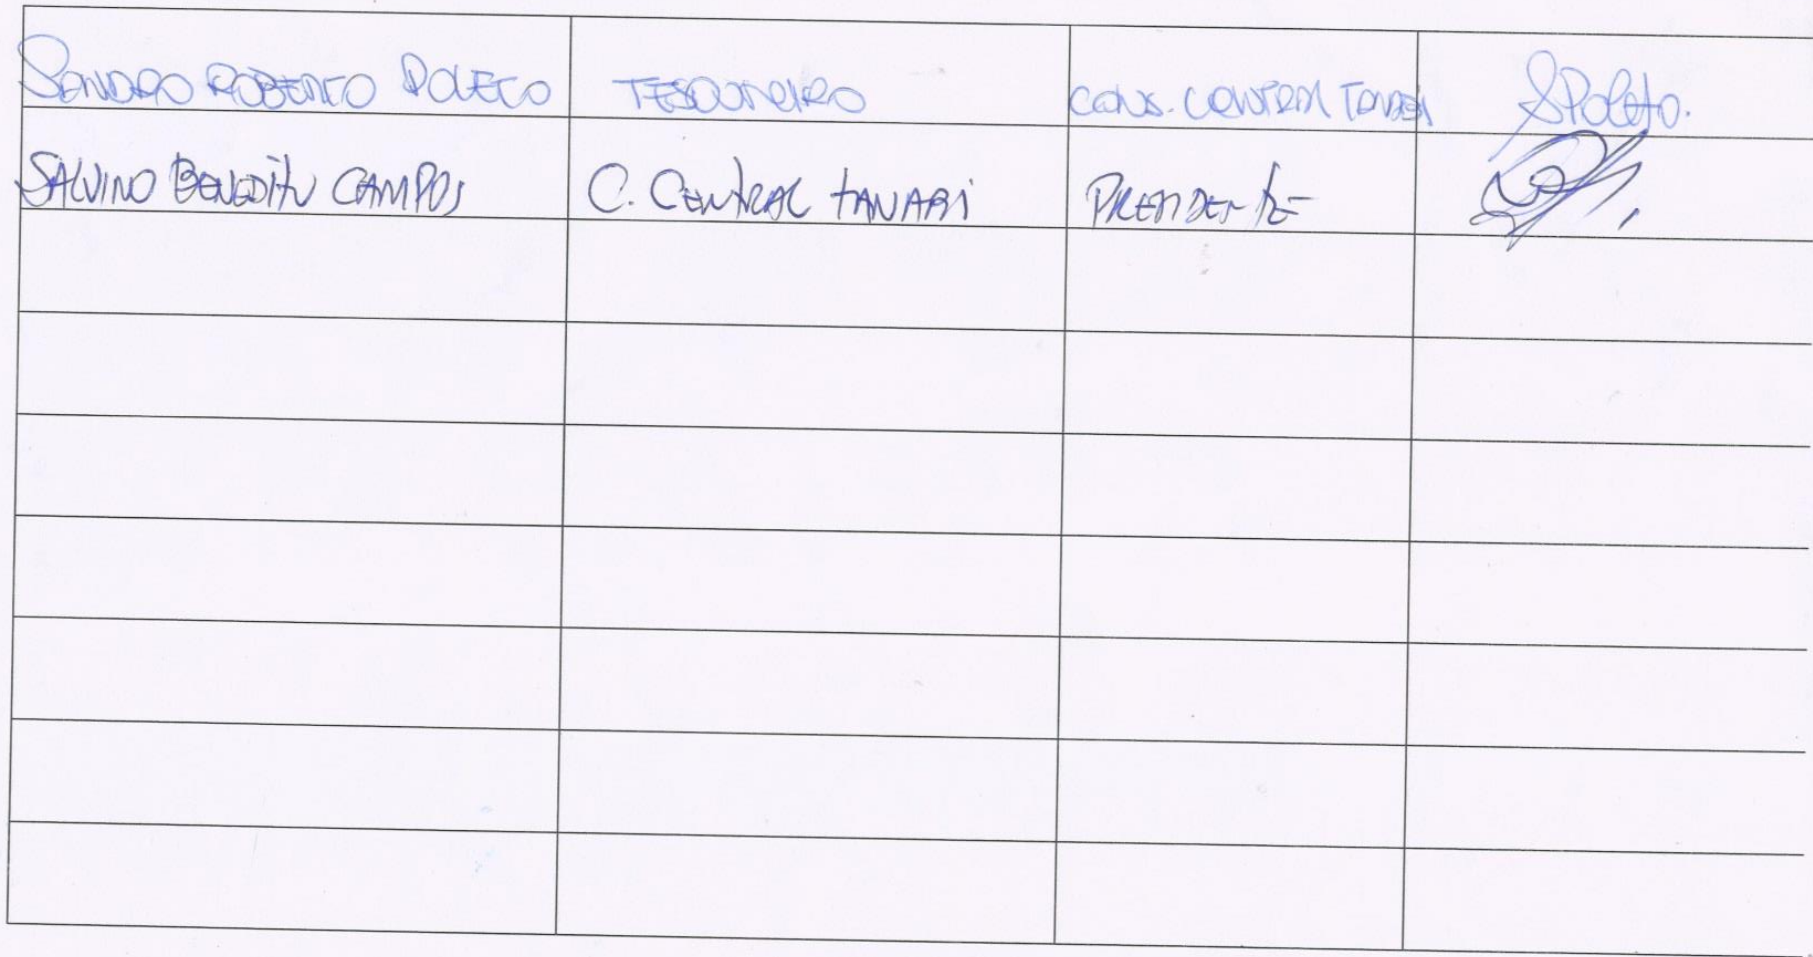 SANDRO ROBERTO POLETO TESOUREIRO CONS. CENTRAL TANABI SPoleto.
SALVINO BENEDITO CAMPOS C. CENTRAL TANABI PRESIDENTE